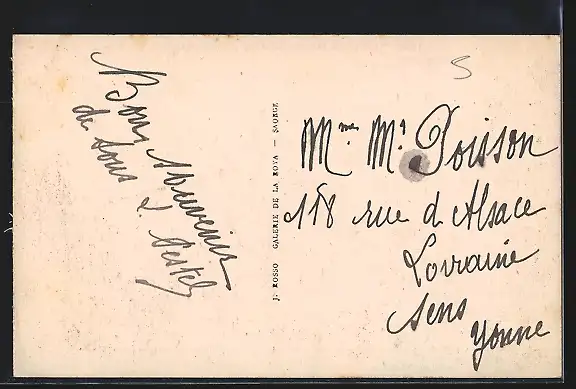 Bons Souvenirs
de tous
J. ROSSO GALERIE DE LA ROYA — SAORGE
5
Mme M. Poisson
118 rue d'Alsace
Lorraine
Sens
Yonne